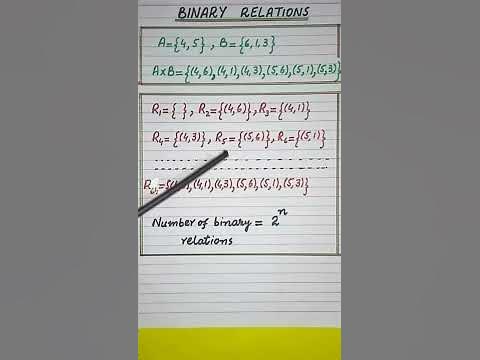 BINARY RELATIONS
A={4,5} , B={6,1,3}
AxB={(4,6),(4,1),(4,3),(5,6),(5,1),(5,3)}
R₁={ }, R₂={(4,6)}, R₃={(4,1)}
R₄={(4,3)}, R₅={(5,6)}, R₆={(5,1)}
(4,1),(4,3),(5,6),(5,1),(5,3)}
Number of binary = 2ⁿ
relations